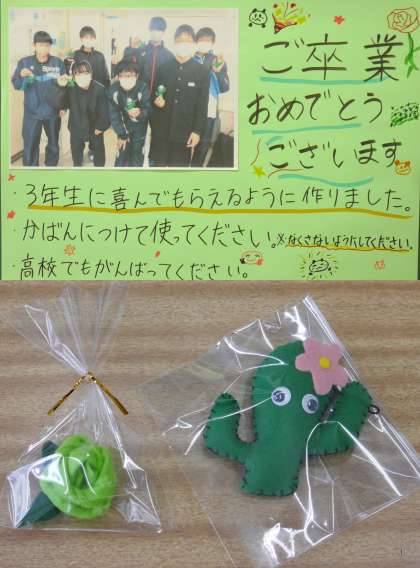 ご卒業
おめでとう
ございます
・3年生に喜んでもらえるように作りました。
・かばんにつけて使ってください。※なくさないようにしてください。
・高校でもがんばってください。